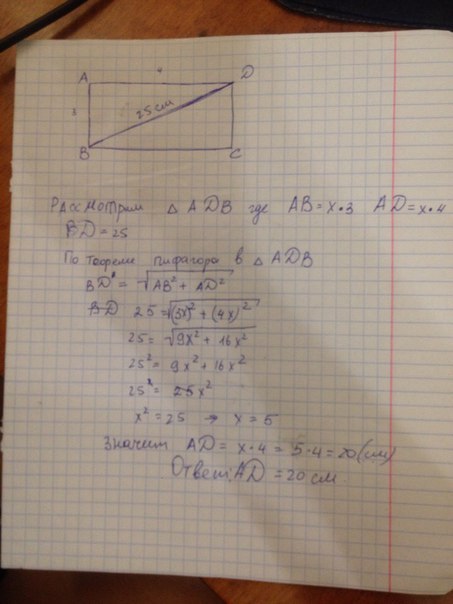 A 4 D
3 25 см
B C
Рассмотрим △ ADB где AB = x·3 AD = x·4
BD = 25
По теореме пифагора в △ ADB
BD = √AB² + AD²
BD 25 = √(3x)² + (4x)²
25 = √9x² + 16x²
25² = 9x² + 16x²
25² = 25x²
x² = 25 → x = 5
Значит AD = x·4 = 5·4 = 20 (см)
Ответ: AD = 20 см.